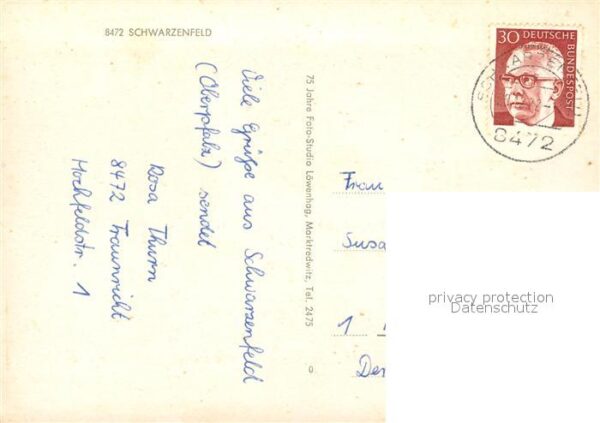 8472 SCHWARZENFELD
Viele Grüße aus Schwarzenfeld
(Oberpfalz) sendet
Rosa Thurn
8472 Traunricht
Hochfeldstr. 1
75 Jahre Foto-Studio Löwenhag, Marktredwitz, Tel. 2475
30 DEUTSCHE
BUNDESPOST
8472
Frau
Susa
1
privacy protection
Datenschutz